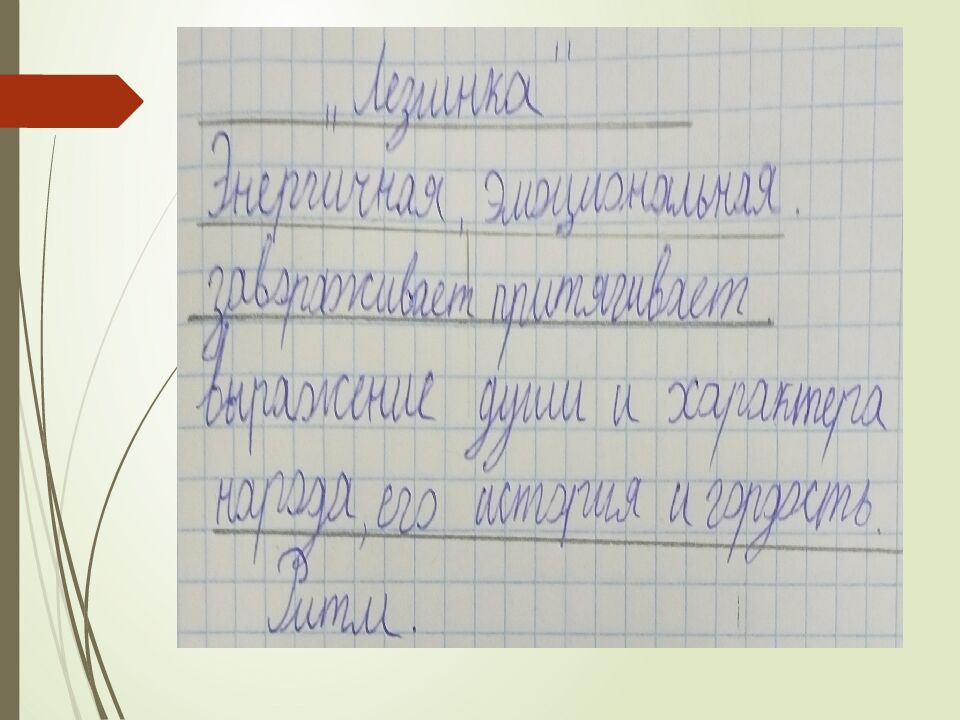 „Лезгинка"
Энергичная, эмоциональная.
завораживает притягивает.
выражение души и характера
народа, его история и гордость.
Ритм.